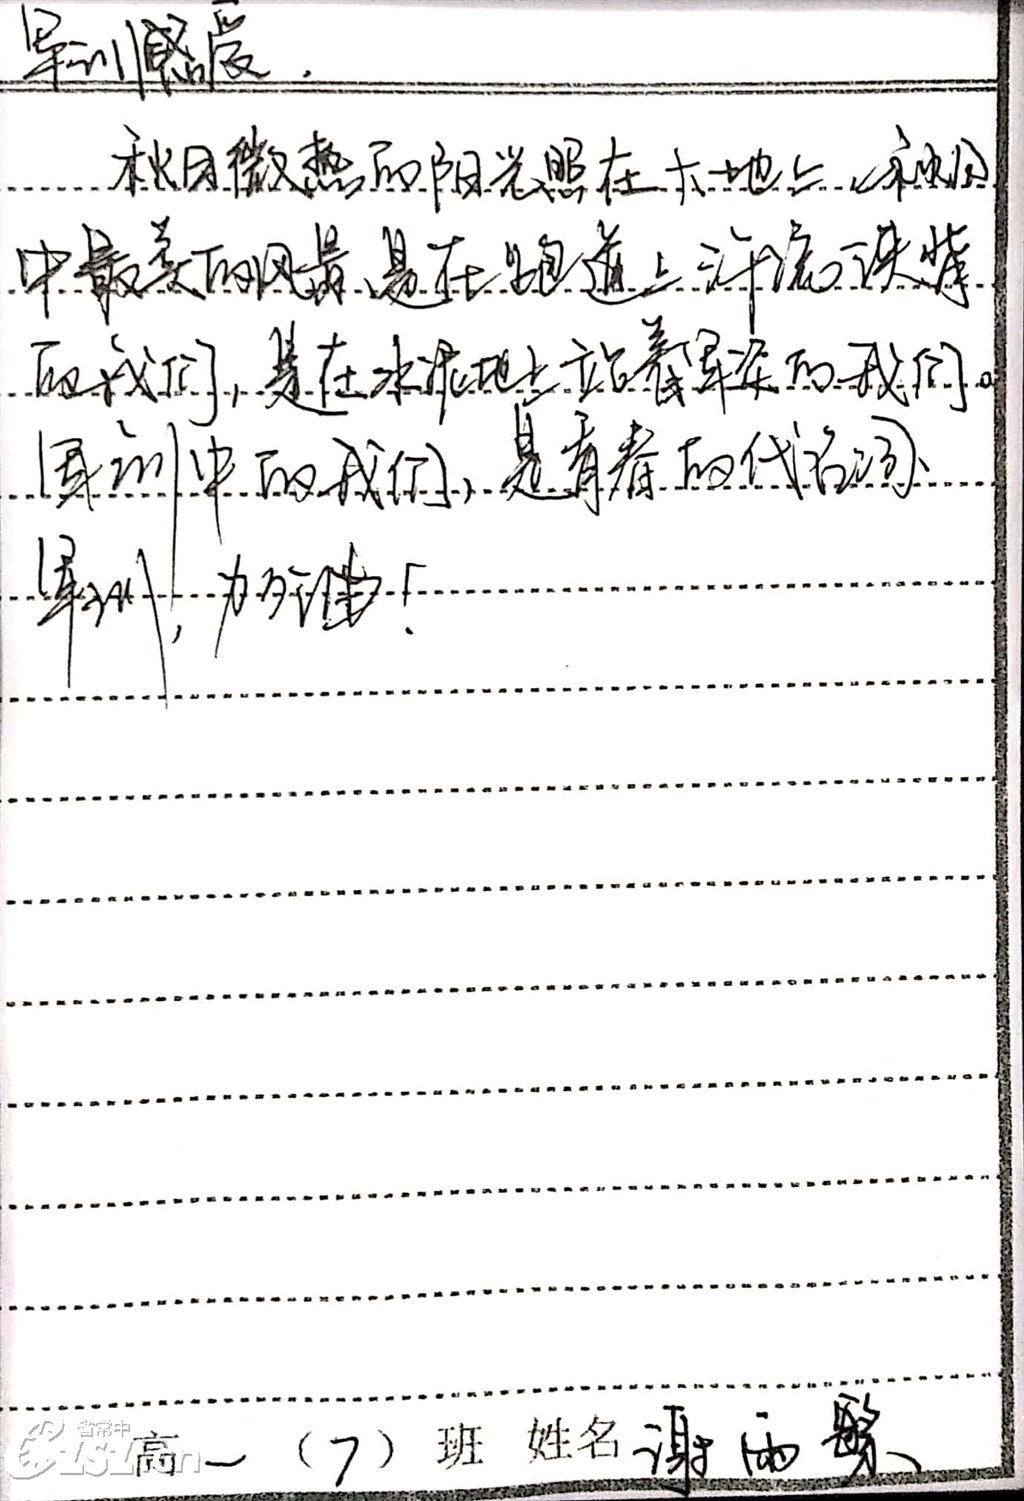 军训感受.
秋日微热的阳光照在大地上,秋日
中最美的风景,是在跑道上汗流浃背
的我们,是在水泥地上站着军姿的我们。
军训中的我们,是青春的代名词、
军训,加油!
高一(7)班 姓名 谢雨
省常中